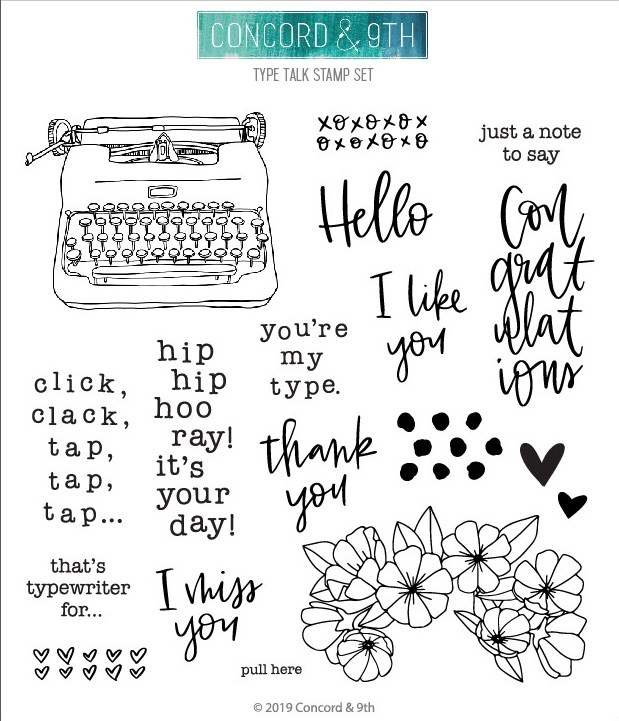 CONCORD & 9TH
TYPE TALK STAMP SET
xoxoxox
oxoxoxo
just a note
to say
Hello
Con
grat
ulat
ions
I like
you
you're
my
type.
hip
hip
hoo
ray!
it's
your
day!
click,
clack,
tap,
tap,
tap...
thank
you
that's
typewriter
for...
I miss
you
pull here
© 2019 Concord & 9th